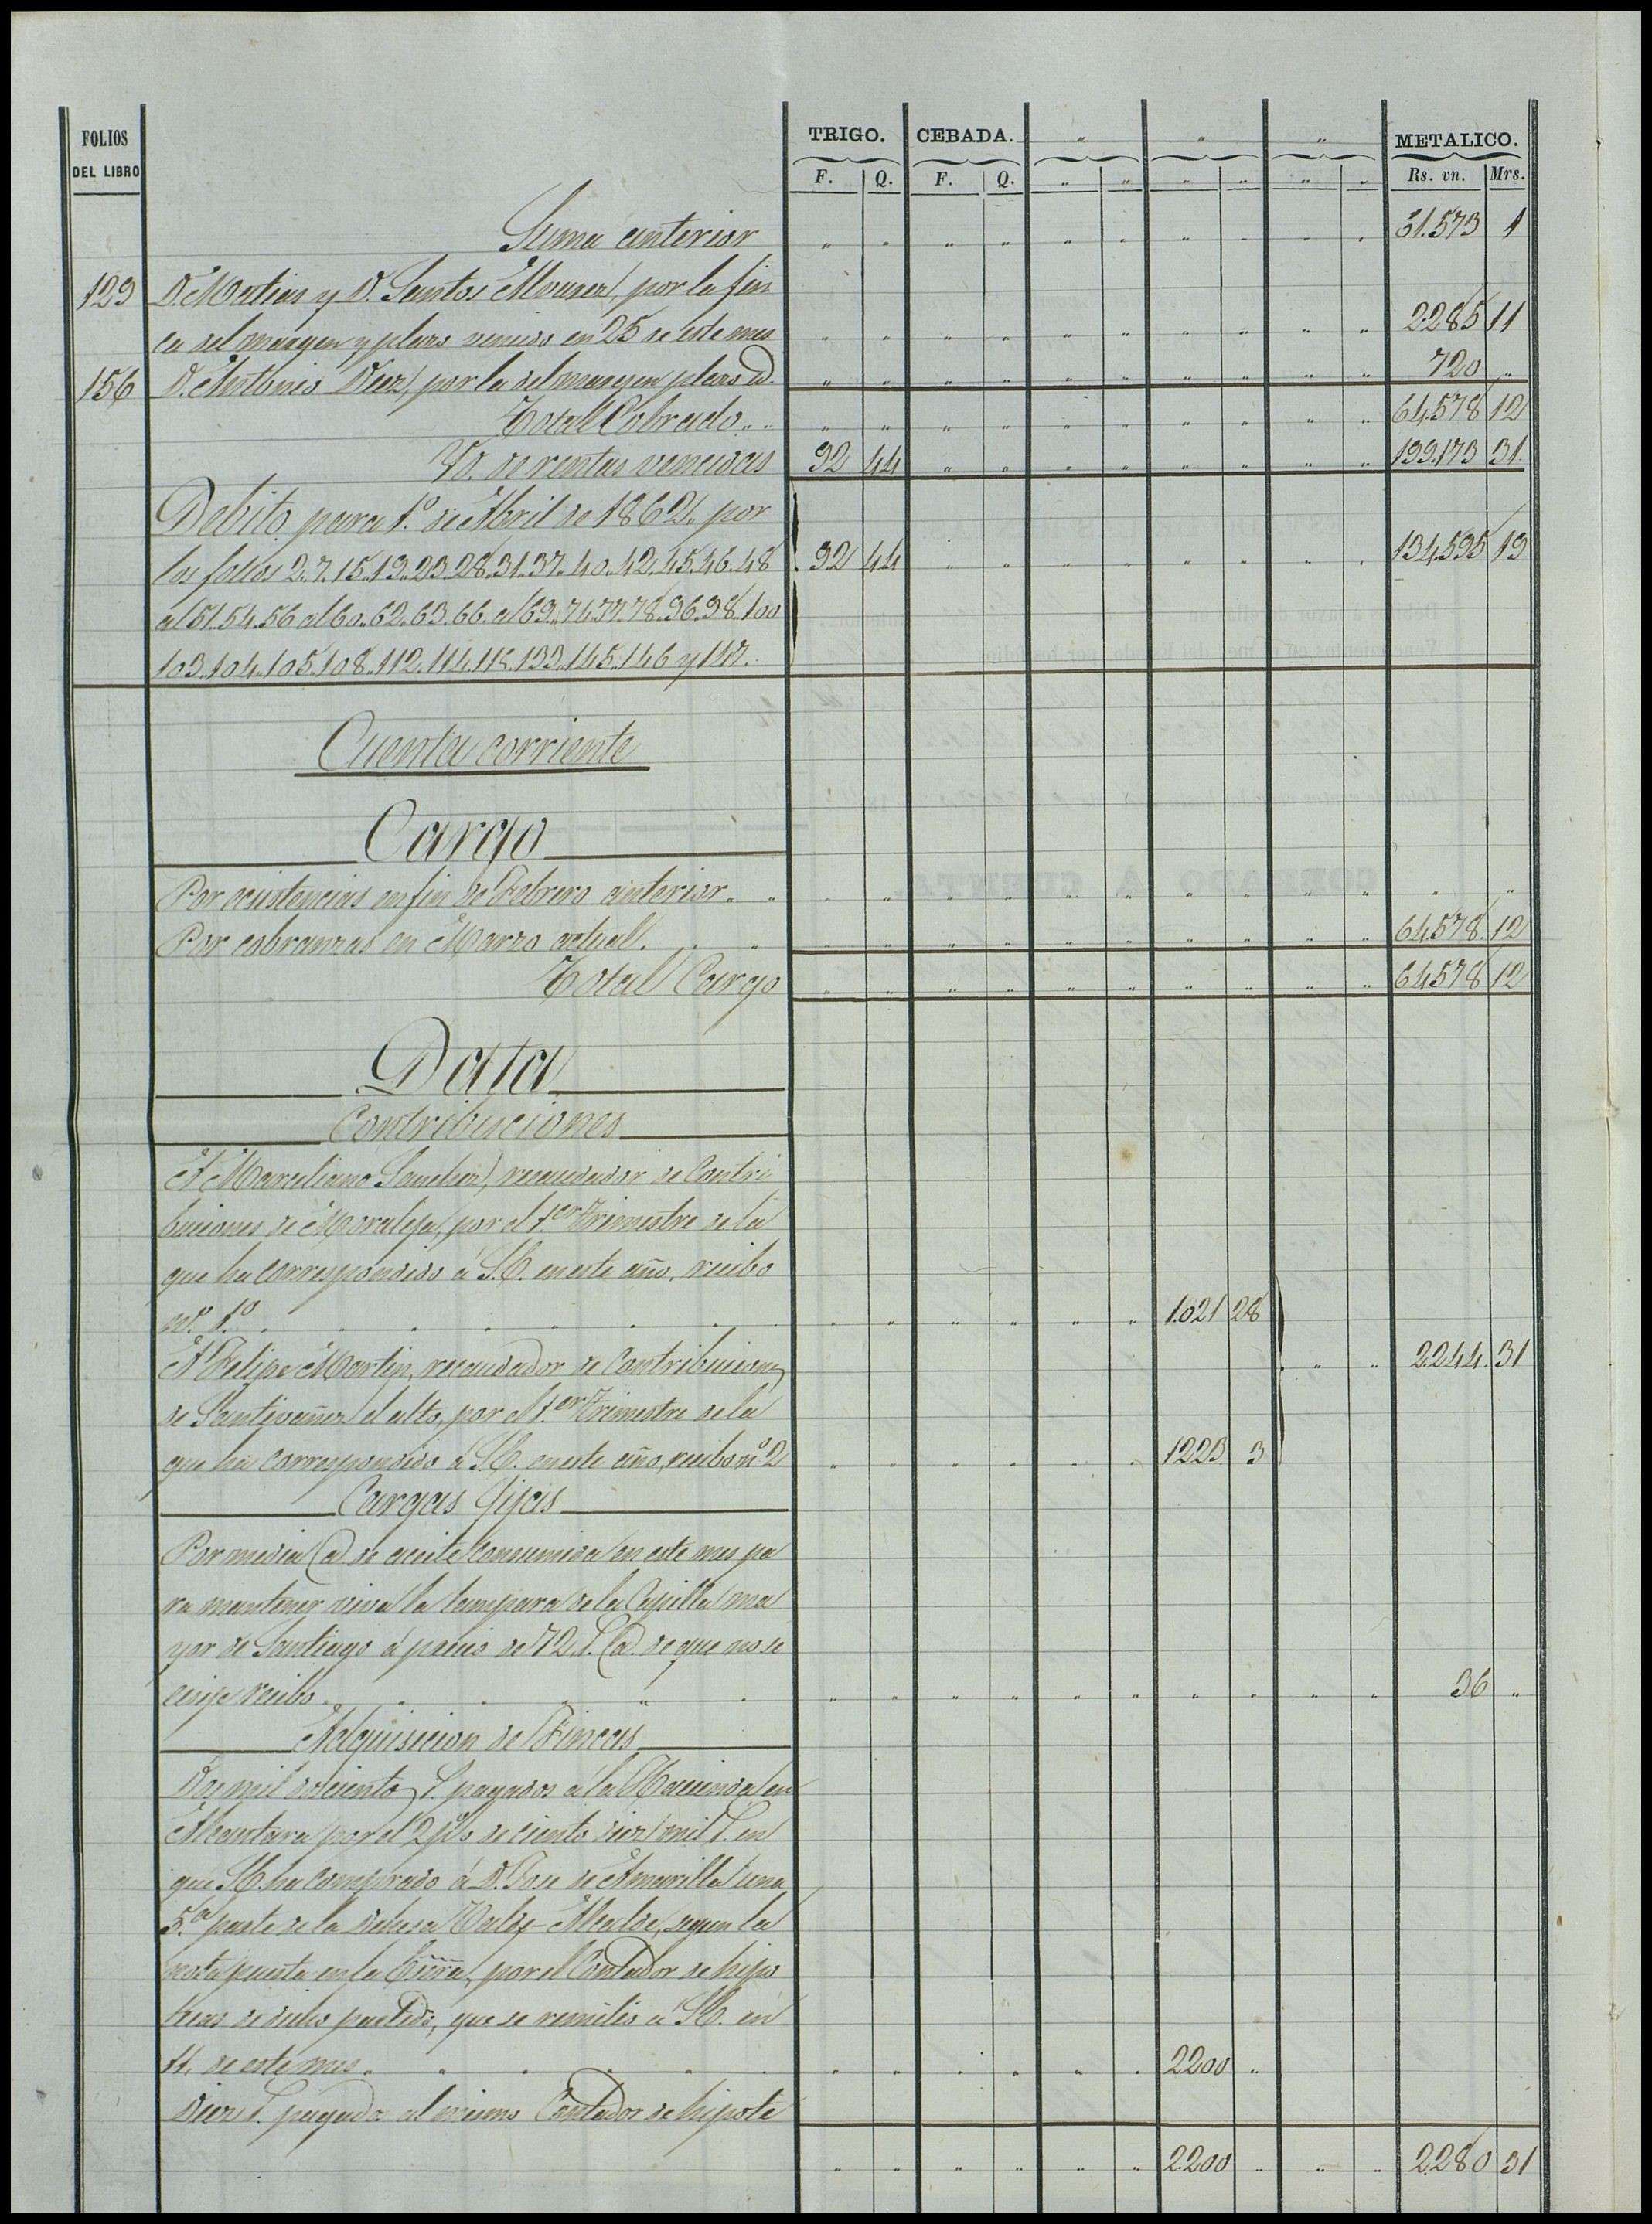 FOLIOS DEL LIBRO TRIGO. CEBADA. " " " METALICO.
F. Q. F. Q. " " " " " " Rs. vn. Mrs.
Suma anterior " " " " " " " " " " 61.573 1
129 D. Matias y D. Santos Alvarez, por la fin
ca del margen y plazo vencido en 25 de este mes " " " " " " " " " " 2285 11
156 D. Antonio Diez, por la del margen plazo id. " " " " " " " " " " 720 "
Total Cobrado " " " " " " " " " " " " 64.578 12
Id. de rentas vencidas 92 44 " " " " " " " " 199.173 31
Debito para 1º. de Abril de 1862. por
los folios 2.7.15.19.23.28.31.37.40.42.45.46.48 92 44 " " " " " " " " 134.595 19
al 51.54.56 al 60.62.63.66. al 69.74.77.78.96.98.100
103.104.105.108.112.114.115.133.145.146 y 147.
Cuenta corriente
Cargo
Por existencias en fin de Febrero anterior " " " " " " " " " " " " " "
Por cobranzas en Marzo actual. " " " " " " " " " " " " 64.578 12
Total Cargo " " " " " " " " " " 64578 12
Data
Contribuciones
A Marceliano Sanchez, recaudador de Contri
buciones de Moraleja, por el 1.er Trimestre de la
que ha correspondido á S.E. en este año, recibo
nº. 1º " " " " " " 1.021 28
A Felipe Martin, recaudador de Contribuciones " " 2.244 31
de Santivañez el alto, por el 1.er Trimestre de la
que ha correspondido á S.E. en este año, recibo nº 2 " " " " " " 1223 3
Cargas fijas
Por media @ de aceite consumida en este mes pa
ra mantener viva la lampara de la Capilla ma
yor de Santiago á precio de 72 @ de que no se
exije recibo " " " " " " " " " " 36 "
Adquisicion de Fincas
Dos mil doscientos pagados á la Hacienda en
Alcantara por el 2 p% de ciento diez mil en
que S.E. ha comprado á D. Jose de Amarilla una
5.ª parte de la dehesa Alcalde, segun la
nota puesta en la por el Contador de hipo
tecas de dicho partido, que se remitió á S.E. en
11. de este mes " " " " " " 2200 "
Diez pagados al mismo Contador de hipote
" " " " " " 2.200 " " " 2280 31